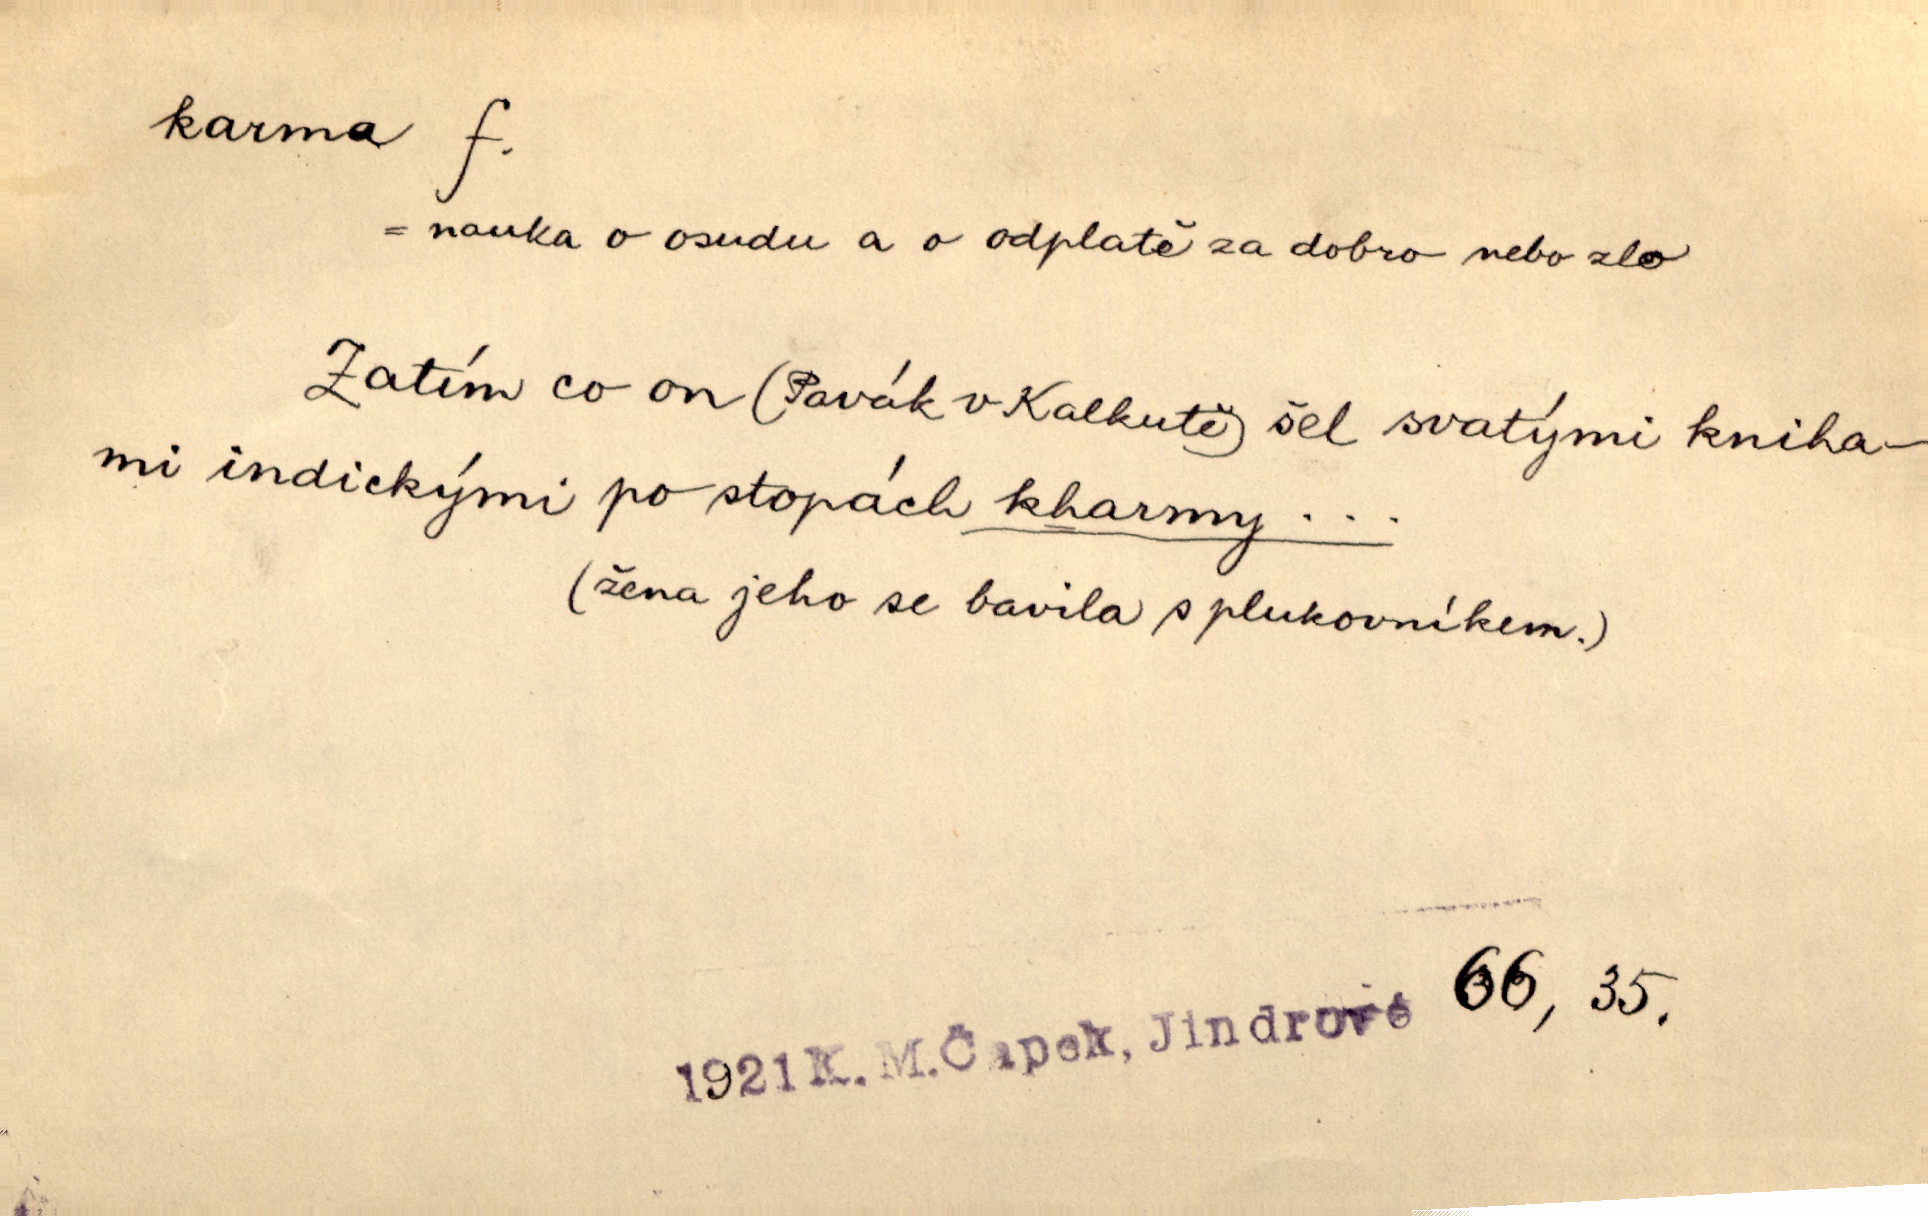 karma f.
= nauka o osudu a o odplatě za dobro nebo zlo
Zatím co on (Pavák v Kalkutě) šel svatými kniha-
mi indickými po stopách kharmy . . .
(žena jeho se bavila s plukovníkem.)
66, 35.
1921 K. M. Čapek, Jindrové